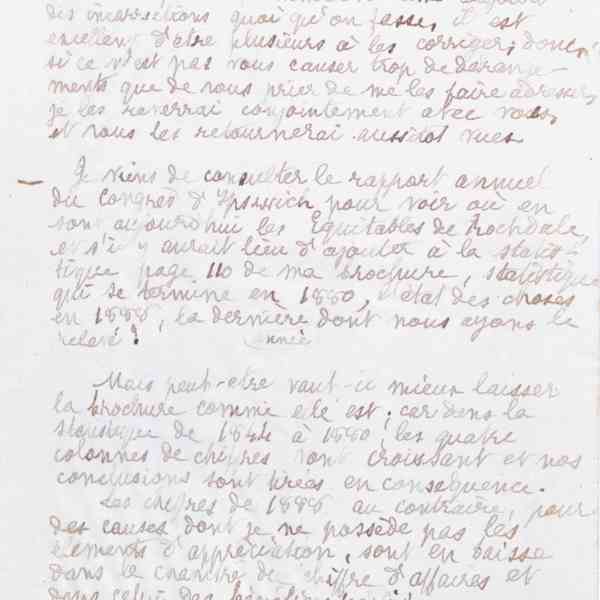 des incorrections quoi qu'on fasse, il est
excellent d'être plusieurs à les corriger, donc,
si ce n'est pas vous causer trop de dérange-
ments que de vous prier de me les faire adresser,
je les reverrai conjointement avec vous,
et vous les retournerai aussitôt vues.
Je viens de consulter le rapport annuel
du Congrès d'Ipswich pour voir où en
sont aujourd'hui les Equitables de Rochdale,
et s'il y aurait lieu d'ajouter à la statis-
tique page 110 de ma brochure, statistique
qui se termine en 1880, l'état des choses
en 1888, la dernière dont nous ayons le
relevé !
année
Mais peut-être vaut-il mieux laisser
la brochure comme elle est ; car dans la
statistique de 1844 à 1880, les quatre
colonnes de chiffres vont croissant et nos
conclusions sont tirées en conséquence.
Les chiffres de 1888 au contraire, pour
des causes dont je ne possède pas les
éléments d'appréciation, sont en baisse
dans le chapitre du chiffre d'affaires et
dans celui des